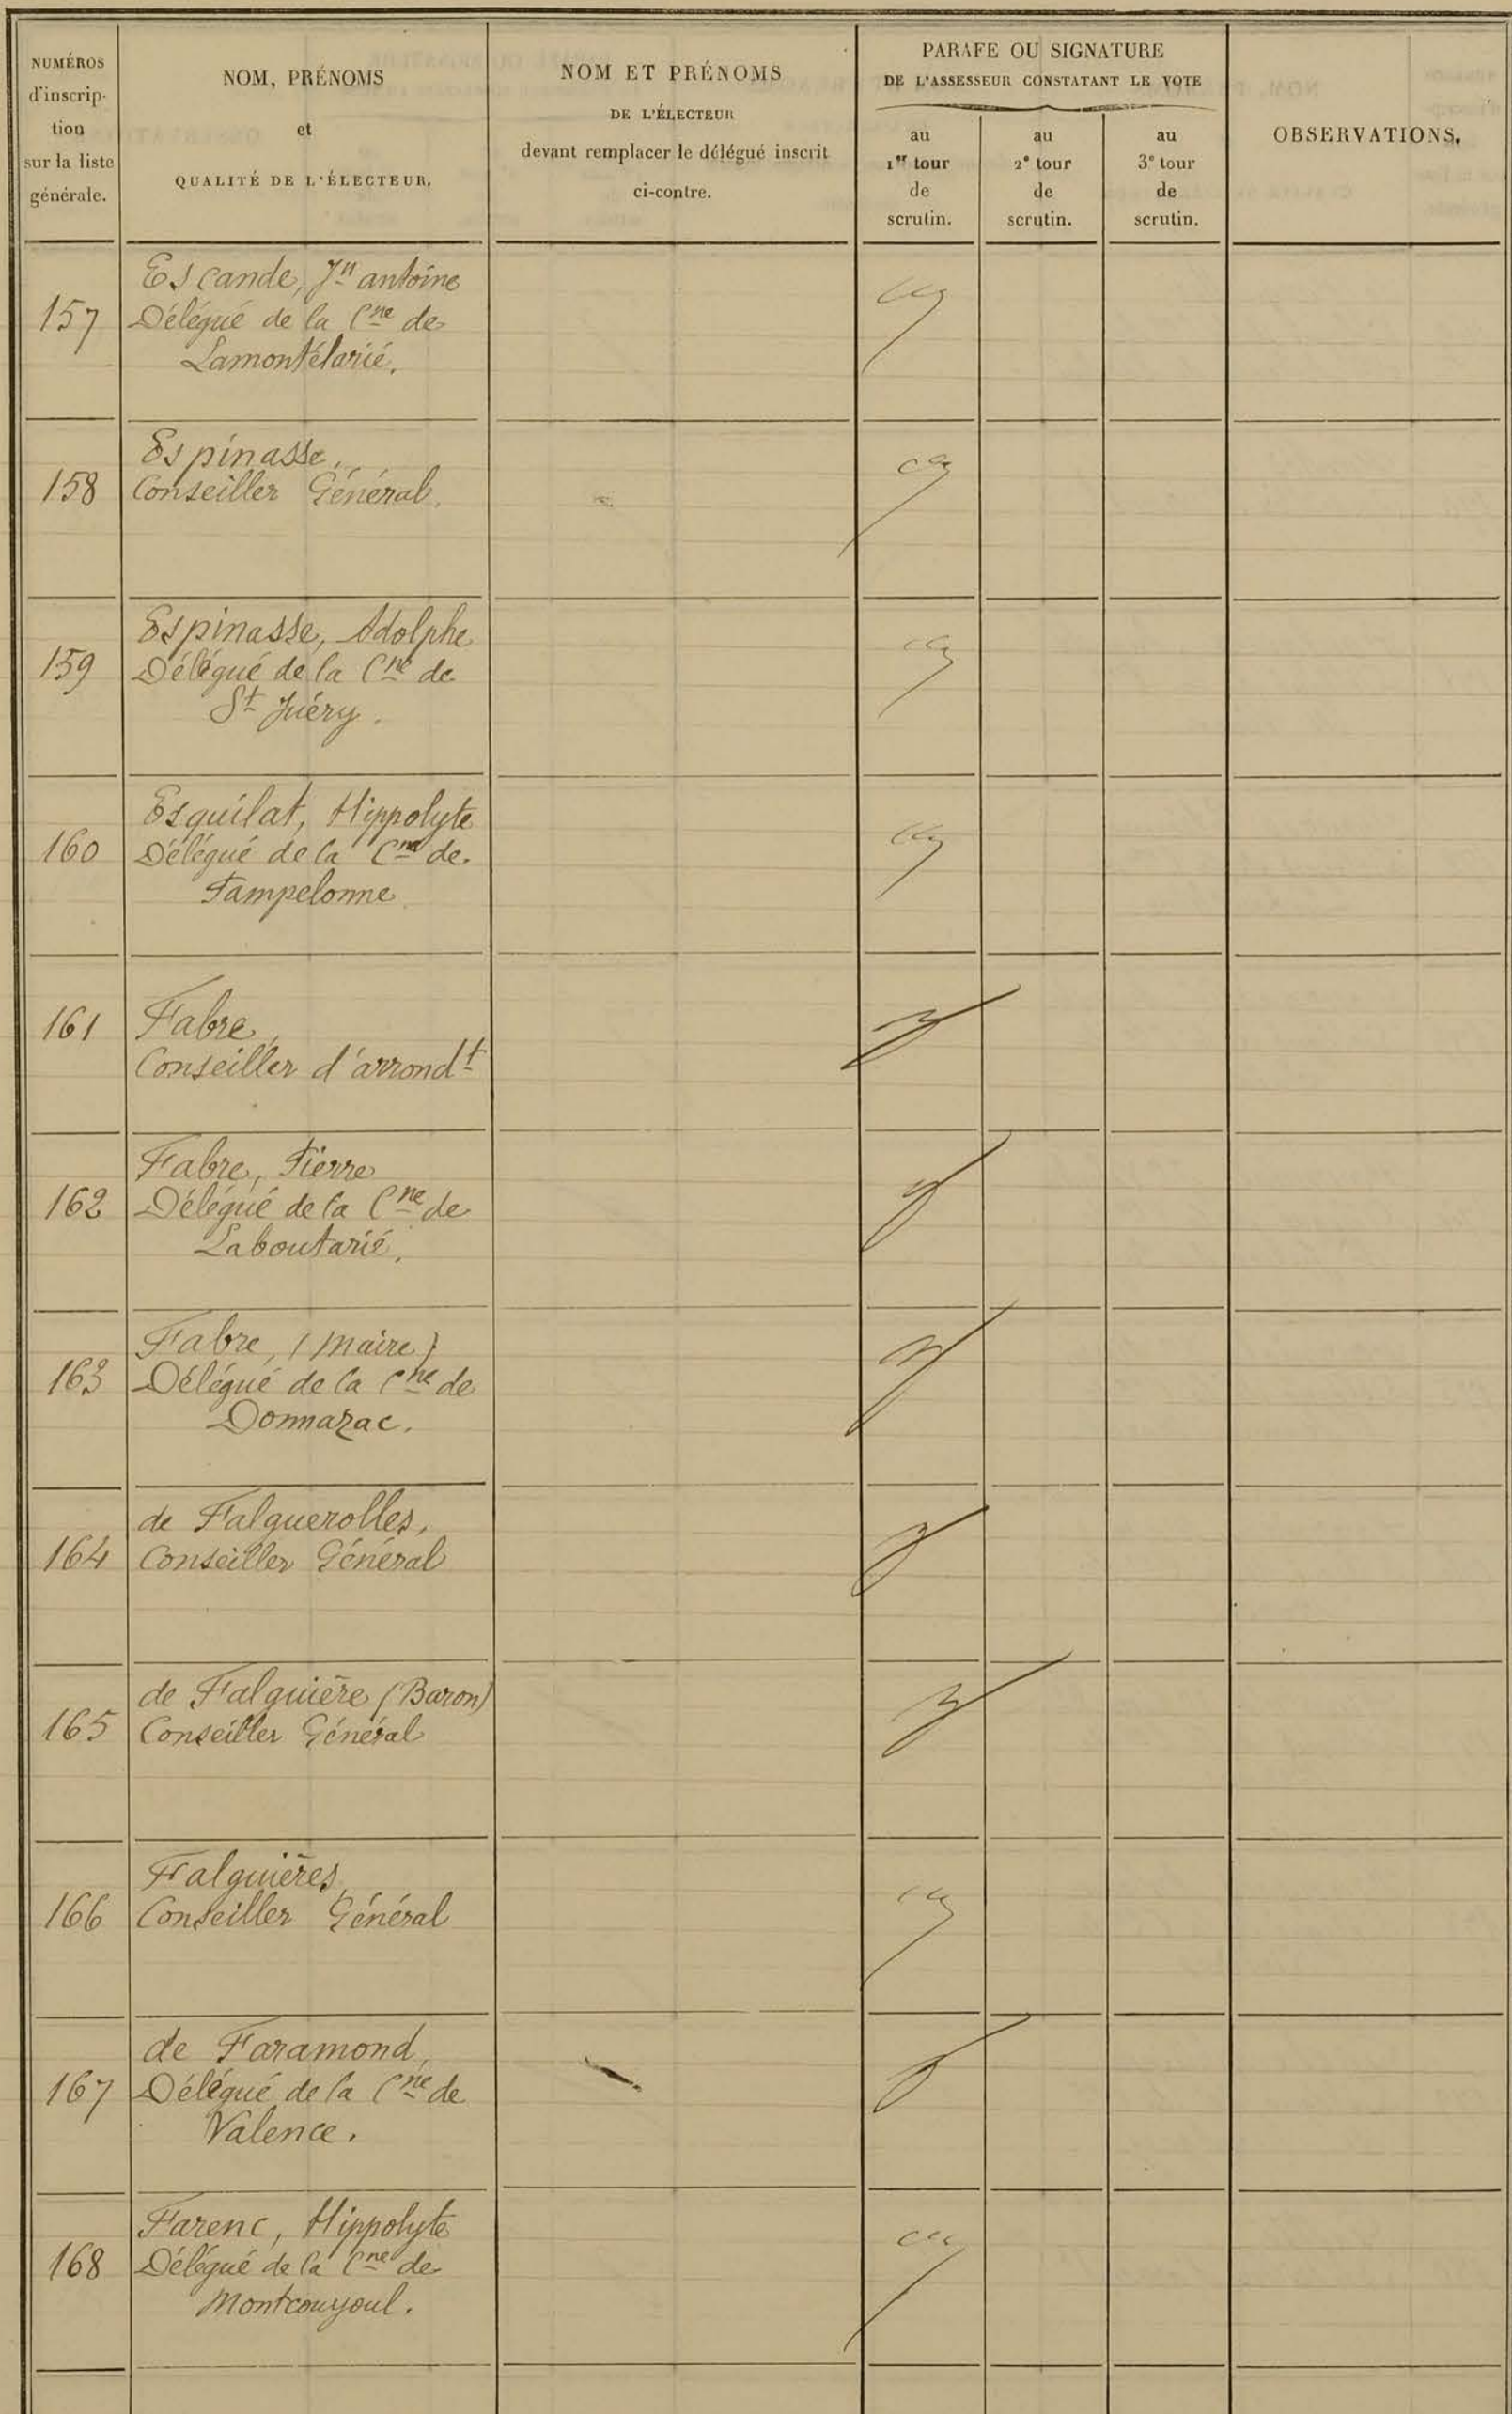 NUMÉROS
d'inscrip-
tion
sur la liste
générale.
NOM, PRÉNOMS
et
QUALITÉ DE L'ÉLECTEUR.
NOM ET PRÉNOMS
DE L'ÉLECTEUR
devant remplacer le délégué inscrit
ci-contre.
PARAFE OU SIGNATURE
DE L'ASSESSEUR CONSTATANT LE VOTE
au
1er tour
de
scrutin.
au
2e tour
de
scrutin.
au
3e tour
de
scrutin.
OBSERVATIONS.
Escande, Jn antoine
157 Délégué de la Cne de
Lamontélarié.
Espinasse,
158 Conseiller Général.
Espinasse, Adolphe
159 Délégué de la Cne de
St Juéry.
Esquilat, Hippolyte
160 Délégué de la Cne de
Pampelonne
161 Fabre,
Conseiller d'arrondt
Fabre, Pierre
162 Délégué de la Cne de
Laboutarié.
Fabre, (Maire)
163 Délégué de la Cne de
Donnazac.
de Falguerolles,
164 Conseiller Général
de Falguière (Baron)
165 Conseiller Général
Falguières,
166 Conseiller Général
de Faramond,
167 Délégué de la Cne de
Valence.
Farenc, Hippolyte
168 Délégué de la Cne de
Montcouyoul.